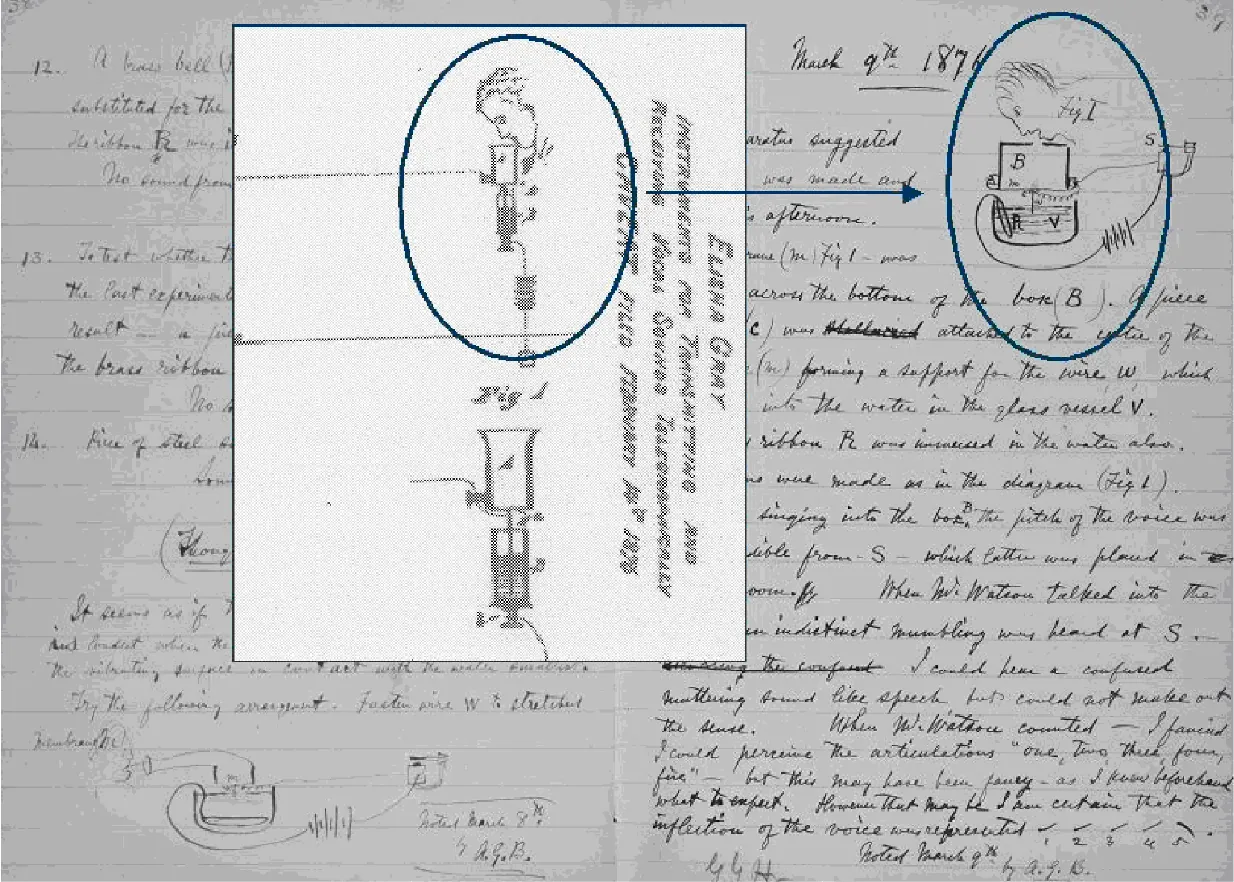 38
12. A brass bell
substituted for the
the ribbon R was
No sound from
13. To test whether
the last experiment
result — a
the brass ribbon
No
14. Piece of steel
It seems as if
loudest when the
the vibrating surface in contact with the water smallest.
Try the following arrangement. Fasten wire W to stretched
membrane
m
Noted March 8th.
by A.G.B.
ELISHA GRAY
INSTRUMENTS FOR TRANSMITTING AND
RECEIVING VOCAL SOUNDS TELEGRAPHICALLY
CAVEAT FILED FEBRUARY 14th 1876
Fig 1
39
March 9th 1876
Fig 1
S
B
m
R V
aratus suggested
was made and
s afternoon.
(m) Fig 1 — was
across the bottom of the box (B). A piece
was attached to the centre of the
(m) forming a support for the wire W which
into the water in the glass vessel V.
ribbon R was immersed in the water also.
were made as in the diagram (Fig 1).
singing into the box B, the pitch of the voice was
from S — which latter was placed in
When Mr. Watson talked into the
indistinct mumbling was heard at S. —
the confused I could hear a confused
muttering sound like speech but could not make out
the sense. When Mr. Watson counted — I fancied
I could perceive the articulations "one, two, three, four,
five" — but this may have been fancy — as I knew beforehand
what to expect. However that may be I am certain that the
inflection of the voice was represented
1 2 3 4 5
Noted March 9th
by A.G.B.
G G H